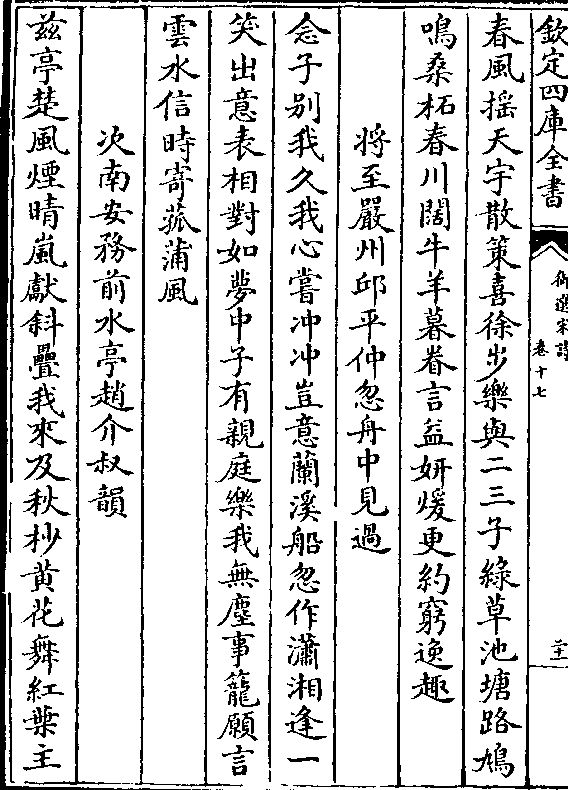 欽定四庫全書
御選宋詩
卷十七
二十一
春風揺天宇散策喜徐步樂與二三子綠草池塘路鳩
鳴桑柘春川闊牛羊暮眷言益妍煖更約窮逸趣
將至嚴州邱平仲忽舟中見過
念子别我久我心嘗冲冲豈意蘭溪船忽作瀟湘逢一
笑出意表相對如夢中子有親庭樂我無塵事籠願言
雲水信時寄菰蒲風
次南安務前水亭趙介叔韻
兹亭楚風煙晴嵐獻斜疊我來及秋杪黄花舞紅葉主